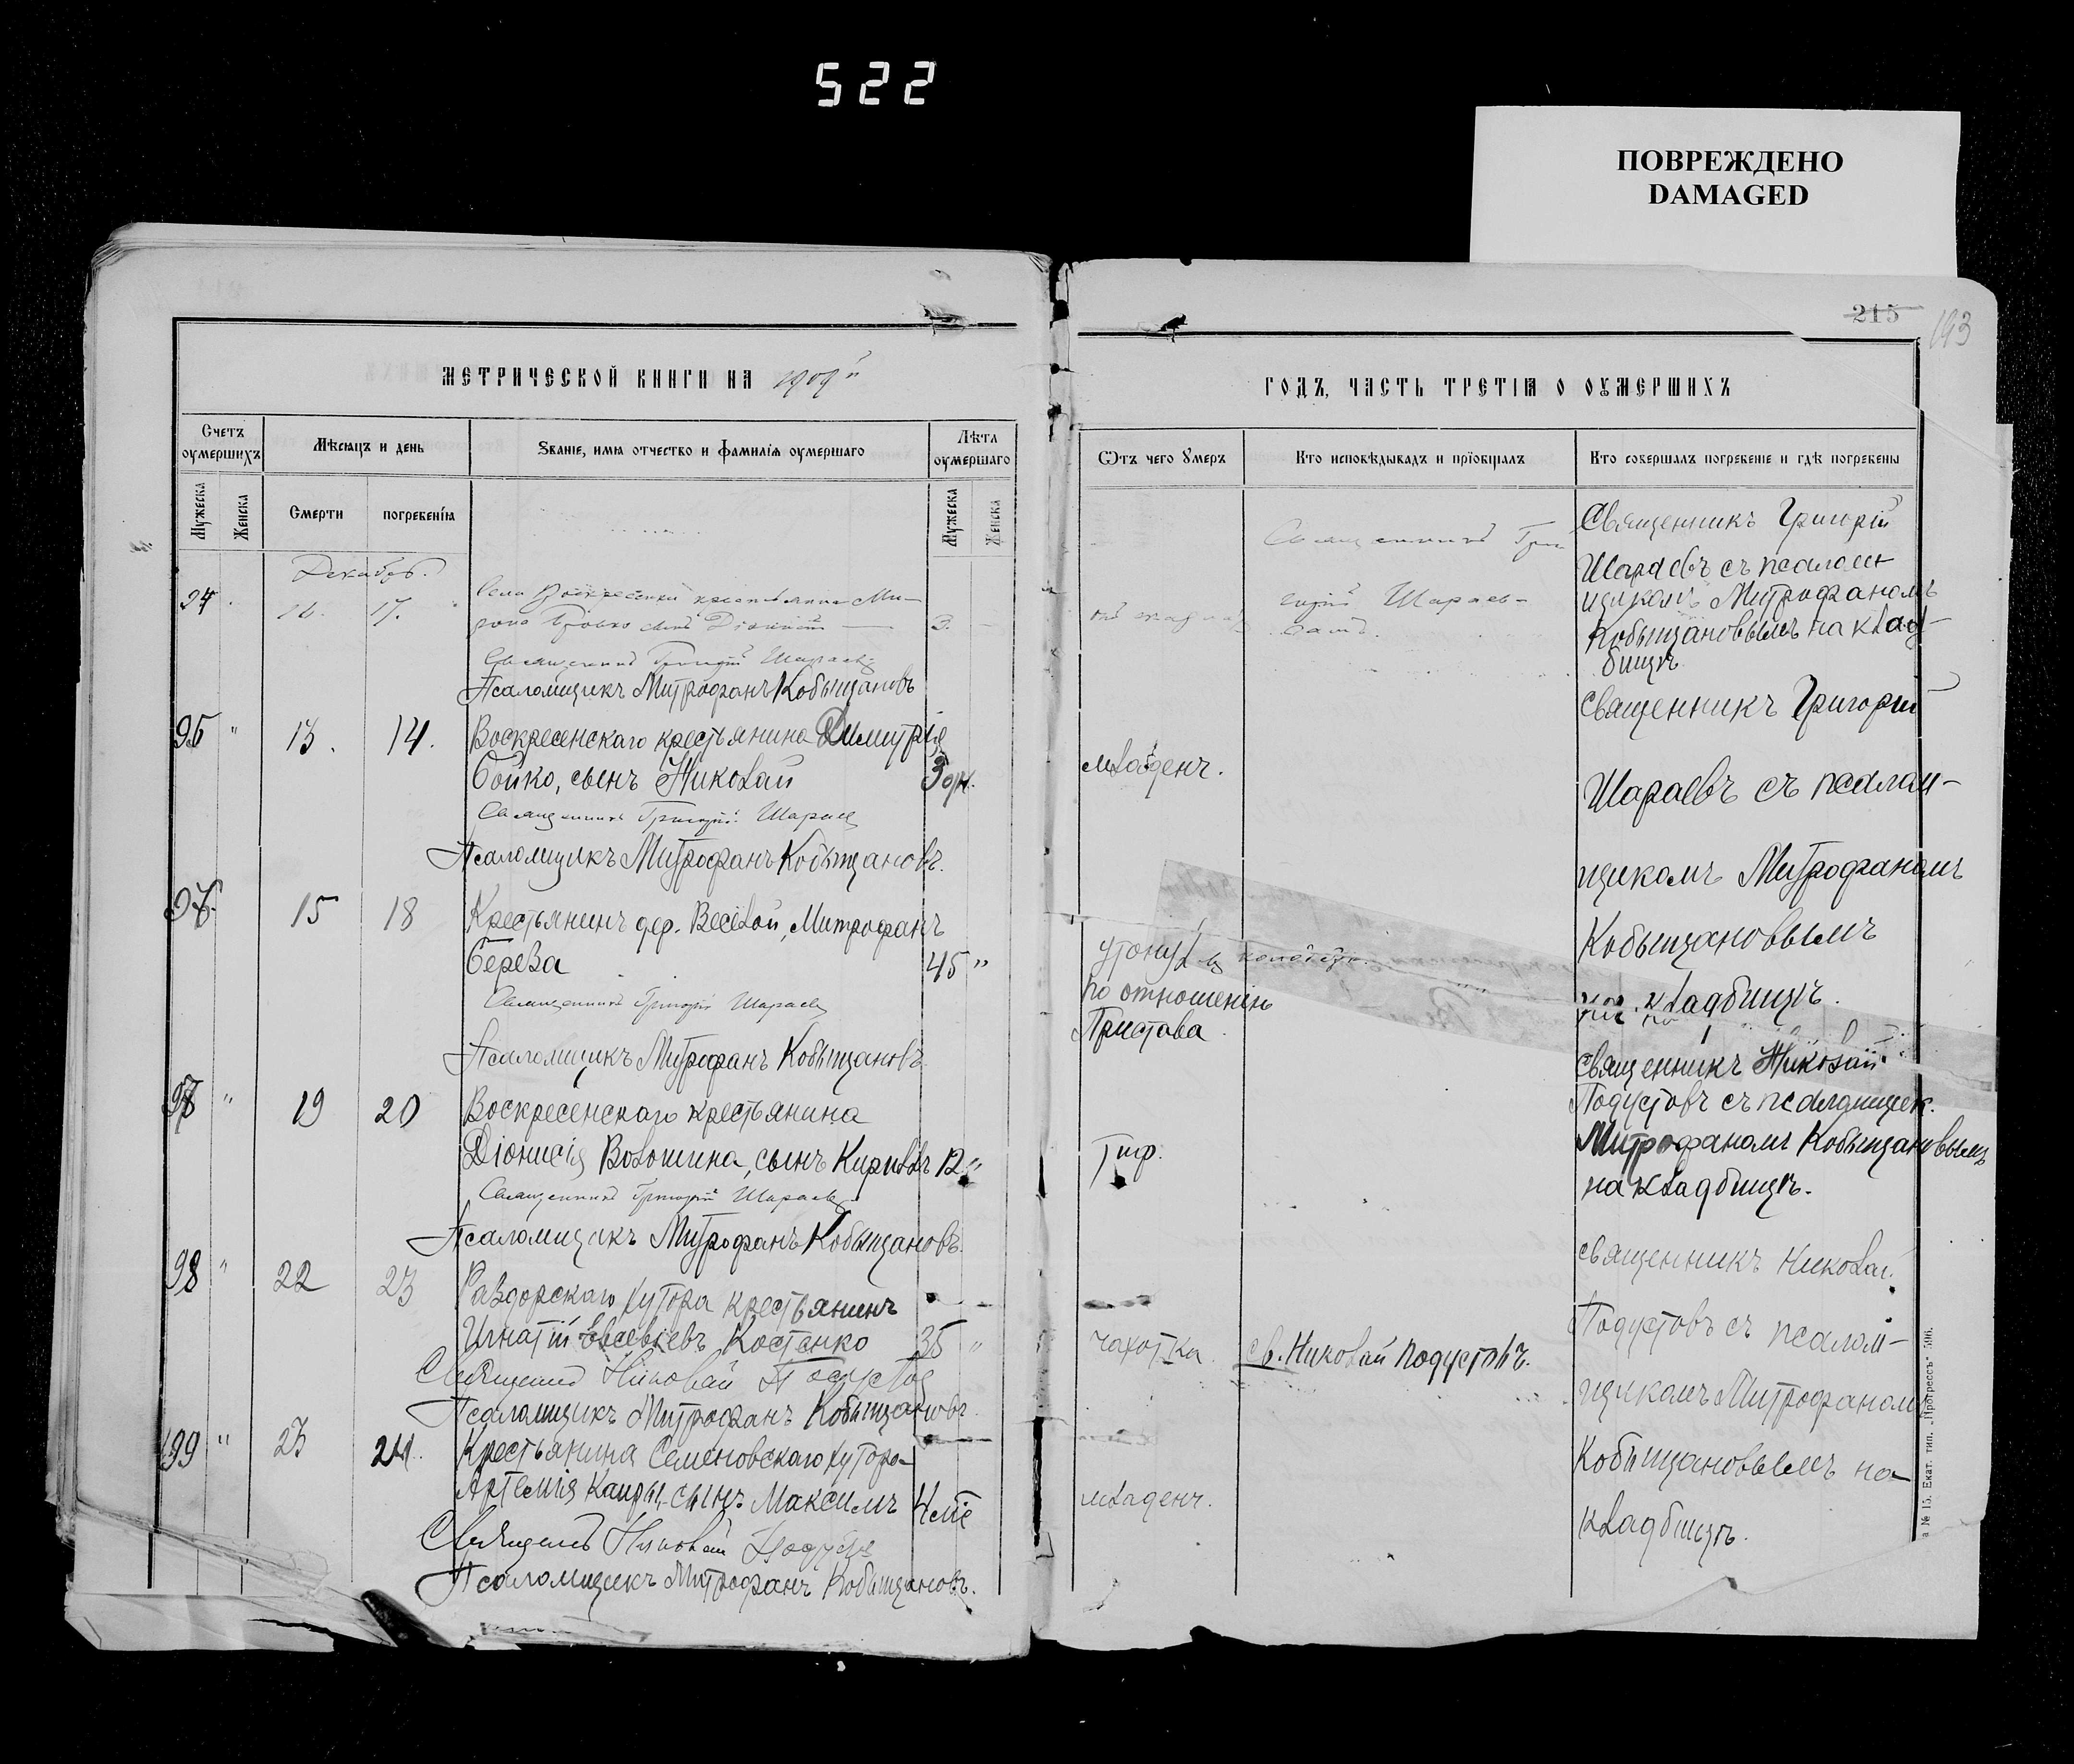 522
ПОВРЕЖДЕНО
DAMAGED
215
193
МЕТРИЧЕСКОЙ КНИГИ НА 1909й
ГОДЪ, ЧАСТЬ ТРЕТІЯ О ОУМЕРШИХЪ
Счетъ оумершихъ
Мѣсяцъ и день
Званіе, имя отчество и фамилія оумершаго
Лѣта оумершаго
Ѿтъ чего оумеръ
Кто исповѣдывалъ и пріобщалъ
Кто совершалъ погребеніе и гдѣ погребены
Мужеска
Женска
Смерти
погребенія
Мужеска
Женска
Декабрь.
94
17.
Села Воскресенки крестьянина Ми-
рона Бойко сынъ Діонисій
3.
Священникъ Григорій Шараевъ
Псаломщикъ Митрофанъ Кобыщановъ
Священникъ Гри-
горій Шараев-
Священникъ Григорій
Шараевъ съ псалом
щикомъ Митрофаномъ
Кобыщановымъ на клад-
бищѣ
95 " 13. 14. Воскресенскаго крестьянина Димитрія
Бойко, сынъ Николай
Священникъ Григорій Шараевъ
Псаломщикъ Митрофанъ Кобыщановъ.
младенч.
священникъ Григорій
Шараевъ съ псалом-
щикомъ Митрофаномъ
Кобыщановымъ
кладбищѣ.
96. 15 18 Крестьянинъ дер. Весёлой, Митрофанъ
Береза 45 "
Священникъ Григорій Шараевъ
Псаломщикъ Митрофанъ Кобыщановъ
утонулъ въ колодезѣ
по отношенію
Пристава.
97 " 19 20 Воскресенскаго крестьянина
Діонисія Волошина, сынъ Кириллъ 12 "
Священникъ Григорій Шараевъ
Псаломщикъ Митрофанъ Кобыщановъ.
Тиф.
священникъ Николай
Подустовъ съ псаломщик.
Митрофаномъ Кобыщановымъ
на кладбищѣ.
98 " 22 23 Раздорскаго хутора крестьянинъ
Игнатій Евсевіевъ Костенко 35 "
Священникъ Николай Подустовъ
Псаломщикъ Митрофанъ Кобыщановъ.
чахотка. св. Николай Подустовъ.
священникъ Николай
Подустовъ съ псалом-
щикомъ Митрофаномъ
Кобыщановымъ на
кладбищѣ.
99 " 23 24. Крестьянина Семеновскаго хутора
Артемія Каиры, сынъ Максимъ
Священникъ Николай Подустовъ
Псаломщикъ Митрофанъ Кобыщановъ.
младенч.
а № 15. Екат. тип. „Прогрессъ" 596.